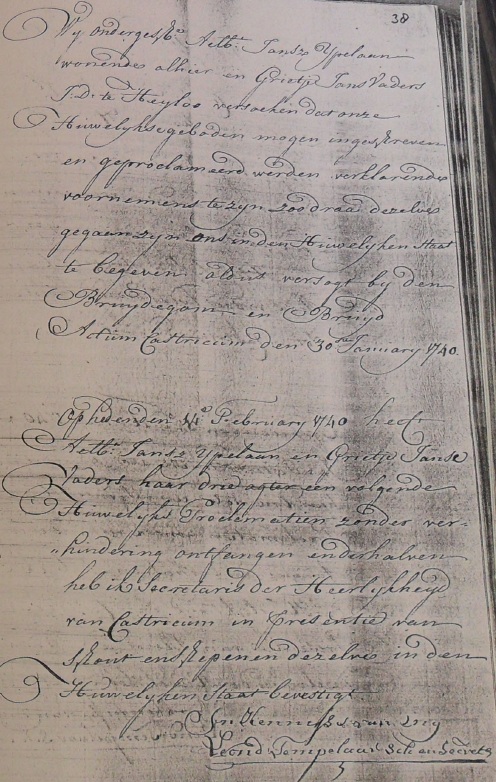 38
Wij ondergesz:n Aelb:t Jansz Ypelaan
wonende alhier en Grietje Jans Vaders
J.D. te Heyloo versoeken dat onze
Huwelykse geboden mogen ingeschreven
en geproclameerd werden verklarende
voornemens te zyn zoo draa dezelve
gegaan zyn ons in den Huwelyken Staat
te begeven aldus versogt by den
Bruydegom en Bruyd
Actum Castricum den 30 January 1740
Op heden den February 1740 heeft
Aelb:t Jansz Ypelaan en Grietje Janse
Vaders haar drie agter een volgende
Huwelyks Proclamatien zonder ver=
"hindering ontfangen en derhalven
heb ik Secretaris der Heerlykheyd
van Castricum in presentie van
Schout en Schepenen dezelve in den
Huwelyken Staat bevestigt
In Kennisse van my
Leend Tempelaar Sch en Secrets